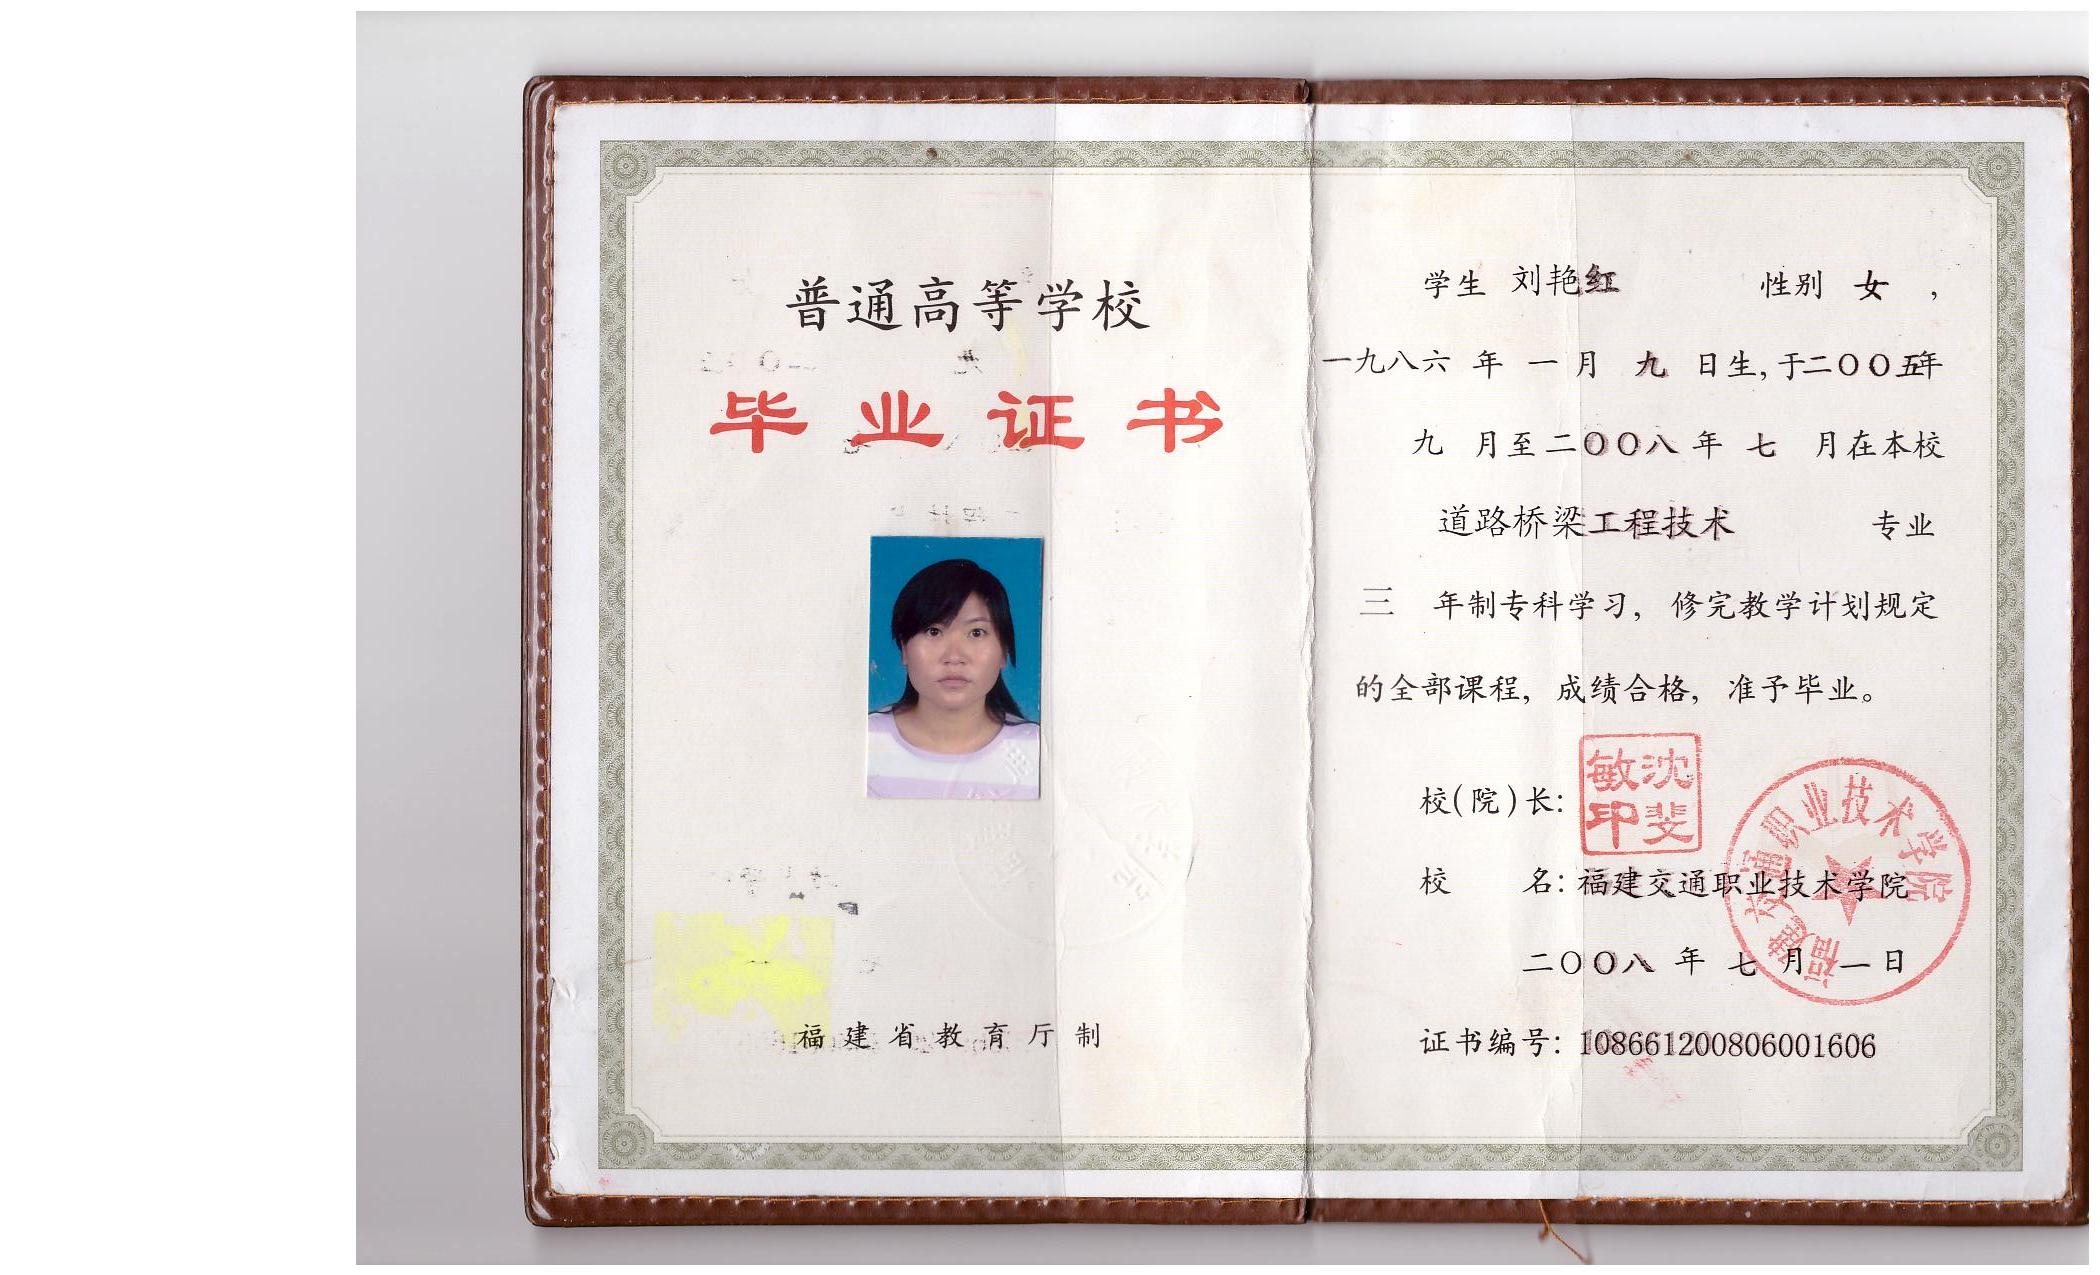 普通高等学校
毕业证书
福建省教育厅制
学生 刘艳红 性别 女 ，
一九八六 年 一 月 九 日生，于二〇〇五年
九 月至二〇〇八 年 七 月在本校
道路桥梁工程技术 专业
三 年制专科学习， 修完教学计划规定
的全部课程， 成绩合格， 准予毕业。
校（院）长：
沈斐敏印
校 名：福建交通职业技术学院
福建交通职业技术学院
二〇〇八 年 七 月 一 日
证书编号：108661200806001606